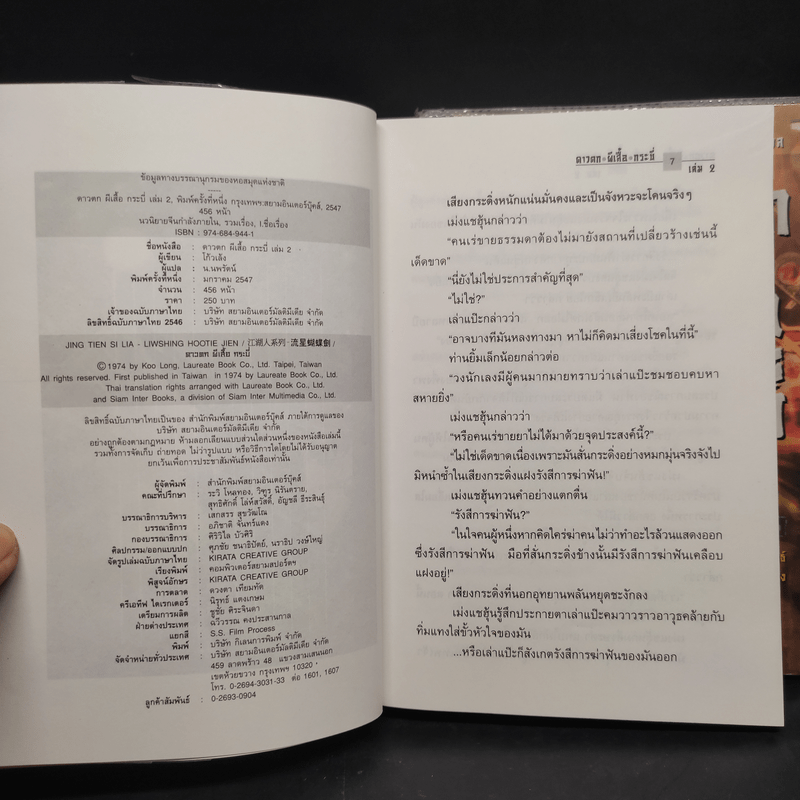 ข้อมูลทางบรรณานุกรมของหอสมุดแห่งชาติ
-----
ดาวตก ผีเสื้อ กระบี่ เล่ม 2, พิมพ์ครั้งที่หนึ่ง กรุงเทพฯ:สยามอินเตอร์บุ๊คส์, 2547
456 หน้า
นวนิยายจีนกำลังภายใน, รวมเรื่อง, I.ชื่อเรื่อง
ISBN : 974-684-944-1
ชื่อหนังสือ : ดาวตก ผีเสื้อ กระบี่ เล่ม 2
ผู้เขียน : โก้วเล้ง
ผู้แปล : น.นพรัตน์
พิมพ์ครั้งที่หนึ่ง : มกราคม 2547
จำนวน : 456 หน้า
ราคา : 250 บาท
เจ้าของฉบับภาษาไทย : บริษัท สยามอินเตอร์มัลติมีเดีย จำกัด
ลิขสิทธิ์ฉบับภาษาไทย 2546 : บริษัท สยามอินเตอร์มัลติมีเดีย จำกัด
JING TIEN SI LIA - LIWSHING HOOTIE JIEN / 江湖人系列·流星蝴蝶劍 /
ดาวตก ผีเสื้อ กระบี่
©1974 by Koo Long, Laureate Book Co., Ltd. Taipei, Taiwan
All rights reserved. First published in Taiwan in 1974 by Laureate Book Co., Ltd.
Thai translation rights arranged with Laureate Book Co., Ltd.
and Siam Inter Books, a division of Siam Inter Multimedia Co., Ltd.
ลิขสิทธิ์ฉบับภาษาไทยเป็นของ สำนักพิมพ์สยามอินเตอร์บุ๊คส์ ภายใต้การดูแลของ
บริษัท สยามอินเตอร์มัลติมีเดีย จำกัด
อย่างถูกต้องตามกฎหมาย ห้ามลอกเลียนแบบส่วนใดส่วนหนึ่งของหนังสือเล่มนี้
รวมทั้งการจัดเก็บ ถ่ายทอด ไม่ว่ารูปแบบ หรือวิธีการใดโดยไม่ได้รับอนุญาต
ยกเว้นเพื่อการประชาสัมพันธ์หนังสือเท่านั้น
ผู้จัดพิมพ์ : สำนักพิมพ์สยามอินเตอร์บุ๊คส์
คณะที่ปรึกษา : ระวิ โหลทอง, วิฑูร นิรันตราย,
สุทธิศักดิ์ โล่ห์สวัสดิ์, อัญชลี ธีระสินธุ์
บรรณาธิการบริหาร : เสกสรร สุขวัฒโน
บรรณาธิการ : อภิชาติ จันทร์แดง
กองบรรณาธิการ : ศิริวิไล บัวศิริ
ศิลปกรรม/ออกแบบปก : ศุภชัย ชนาธิปัตย์, นราธิป วงษ์ใหญ่
จัดรูปเล่มฉบับภาษาไทย : KIRATA CREATIVE GROUP
เรียงพิมพ์ : คอมพิวเตอร์สยามสปอร์ตฯ
พิสูจน์อักษร : KIRATA CREATIVE GROUP
การตลาด : ดวงตา เทียมทัด
ครีเอทีฟ ไดเรกเตอร์ : นิรุทธ์ แดงเกษม
เตรียมการผลิต : ชูชัย ศิระจินดา
ฝ่ายต่างประเทศ : ฉวีวรรณ คงประสานกาล
แยกสี : S.S. Film Process
พิมพ์ : บริษัท กิเลนการพิมพ์ จำกัด
จัดจำหน่ายทั่วประเทศ : บริษัท สยามอินเตอร์มัลติมีเดีย จำกัด
459 ลาดพร้าว 48 แขวงสามเสนนอก
เขตห้วยขวาง กรุงเทพฯ 10320
โทร. 0-2694-3031-33 ต่อ 1601, 1607
ลูกค้าสัมพันธ์ : 0-2693-0904
ดาวตก • ผีเสื้อ • กระบี่ 7
เล่ม 2
เสียงกระดิ่งหนักแน่นมั่นคงและเป็นจังหวะจะโคนจริงๆ
เม่งแชฮุ้นกล่าวว่า
“คนเร่ขายธรรมดาต้องไม่มายังสถานที่เปลี่ยวร้างเช่นนี้
เด็ดขาด”
“นี่ยังไม่ใช่ประการสำคัญที่สุด”
“ไม่ใช่?”
เล่าแป๊ะกล่าวว่า
“อาจบางทีมันหลงทางมา หาไม่ก็คิดมาเสี่ยงโชคในที่นี้”
ท่านยิ้มเล็กน้อยกล่าวต่อ
“วงนักเลงมีผู้คนมากมายทราบว่าเล่าแป๊ะชมชอบคบหา
สหายยิ่ง”
เม่งแชฮุ้นกล่าวว่า
“หรือคนเร่ขายยาไม่ได้มาด้วยจุดประสงค์นี้?”
“ไม่ใช่เด็ดขาดเนื่องเพราะมันสั่นกระดิ่งอย่างหมกมุ่นจริงจังไป
มิหนำซ้ำในเสียงกระดิ่งแฝงรังสีการฆ่าฟัน!”
เม่งแชฮุ้นทวนคำอย่างแตกตื่น
“รังสีการฆ่าฟัน?”
“ในใจคนผู้หนึ่งหากคิดใคร่ฆ่าคนไม่ว่าทำอะไรล้วนแสดงออก
ซึ่งรังสีการฆ่าฟัน มือที่สั่นกระดิ่งข้างนั้นมีรังสีการฆ่าฟันเคลือบ
แฝงอยู่!”
เสียงกระดิ่งที่นอกอุทยานพลันหยุดชะงักลง
เม่งแชฮุ้นรู้สึกประกายตาเล่าแป๊ะคมวาวราวอาวุธคล้ายกับ
ทิ่มแทงใส่ขั้วหัวใจของมัน
...หรือเล่าแป๊ะก็สังเกตรังสีการฆ่าฟันของมันออก